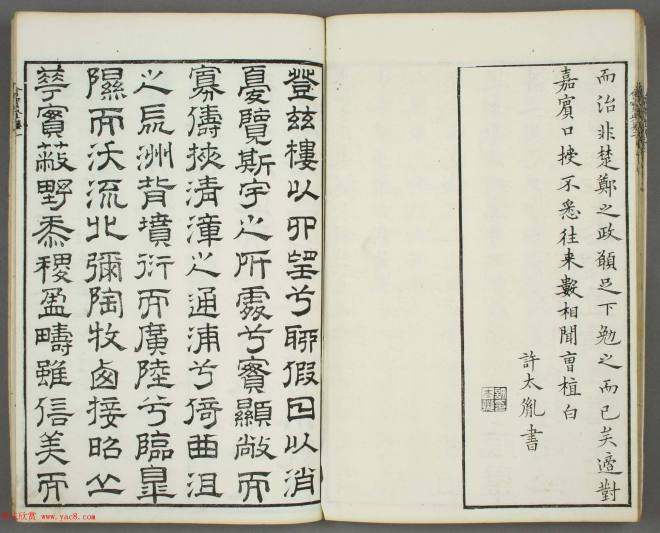 而治非楚鄭之政願足下勉之而已矣適對
嘉賓口授不悉往来數相聞曹植白
許太胤書
登兹樓以四望兮聊假日以消
憂覽斯宇之所處兮實顯敞而
寡儔挾清漳之通浦兮倚曲沮
之長洲背墳衍而廣陸兮臨皋
隰而沃流北彌陶牧西接昭丘
華實蔽野黍稷盈疇雖信美而
欣赏 www.yac8.com